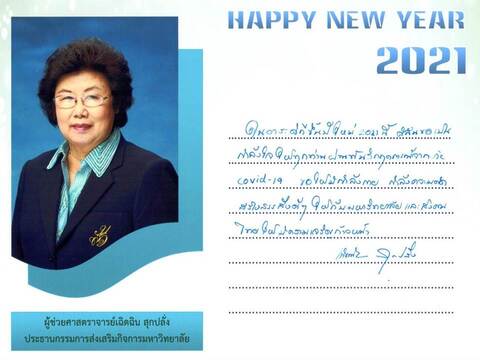 HAPPY NEW YEAR
2021
ในวาระดิถีขึ้นปีใหม่ 2021 นี้ ดิฉันขอเป็น
กำลังใจให้ทุกท่านผ่านพ้นวิกฤต
covid-19 ขอให้มีกำลังกาย กำลังความคิด
สร้างสรรค์สิ่งดีๆ ให้กับมหาวิทยาลัย และสังคม
ไทยให้มีความเจริญก้าวหน้า
ผู้ช่วยศาสตราจารย์เฉิดฉิน สุกปลั่ง
ประธานกรรมการส่งเสริมกิจการมหาวิทยาลัย